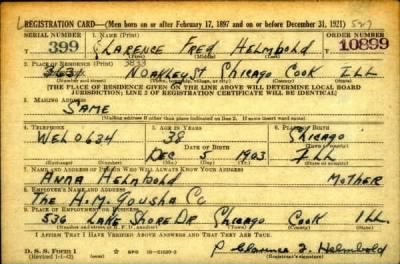 REGISTRATION CARD—(Men born on or after February 17, 1897 and on or before December 31, 1921)
SERIAL NUMBER 1. NAME (Print) ORDER NUMBER
T 399 CLARENCE FRED HELMBOLD 10899
2. PLACE OF RESIDENCE (Print) 3833
3631 N OAKLEY ST CHICAGO COOK ILL
(Number and street) (Town, township, village, or city) (County) (State)
[THE PLACE OF RESIDENCE GIVEN ON THE LINE ABOVE WILL DETERMINE LOCAL BOARD
JURISDICTION; LINE 2 OF REGISTRATION CERTIFICATE WILL BE IDENTICAL]
3. MAILING ADDRESS
SAME
[Mailing address if other than place indicated on line 2. If same insert word same]
4. TELEPHONE 5. AGE IN YEARS 6. PLACE OF BIRTH
WEL 0634 38 CHICAGO
DATE OF BIRTH
DEC 5 1903 ILL
(Exchange) (Number) (Mo.) (Day) (Yr.) (State or country)
7. NAME AND ADDRESS OF PERSON WHO WILL ALWAYS KNOW YOUR ADDRESS
ANNA HELMBOLD MOTHER
8. EMPLOYER'S NAME AND ADDRESS
THE H.M. GOUSHA CO
9. PLACE OF EMPLOYMENT OR BUSINESS
536 LAKE SHORE DR CHICAGO COOK ILL.
(Number and street or R. F. D. number) (Town) (County) (State)
I AFFIRM THAT I HAVE VERIFIED ABOVE ANSWERS AND THAT THEY ARE TRUE.
D. S. S. Form 1
(Revised 1-1-42) (over) Clarence F. Helmbold
(Registrant's signature)